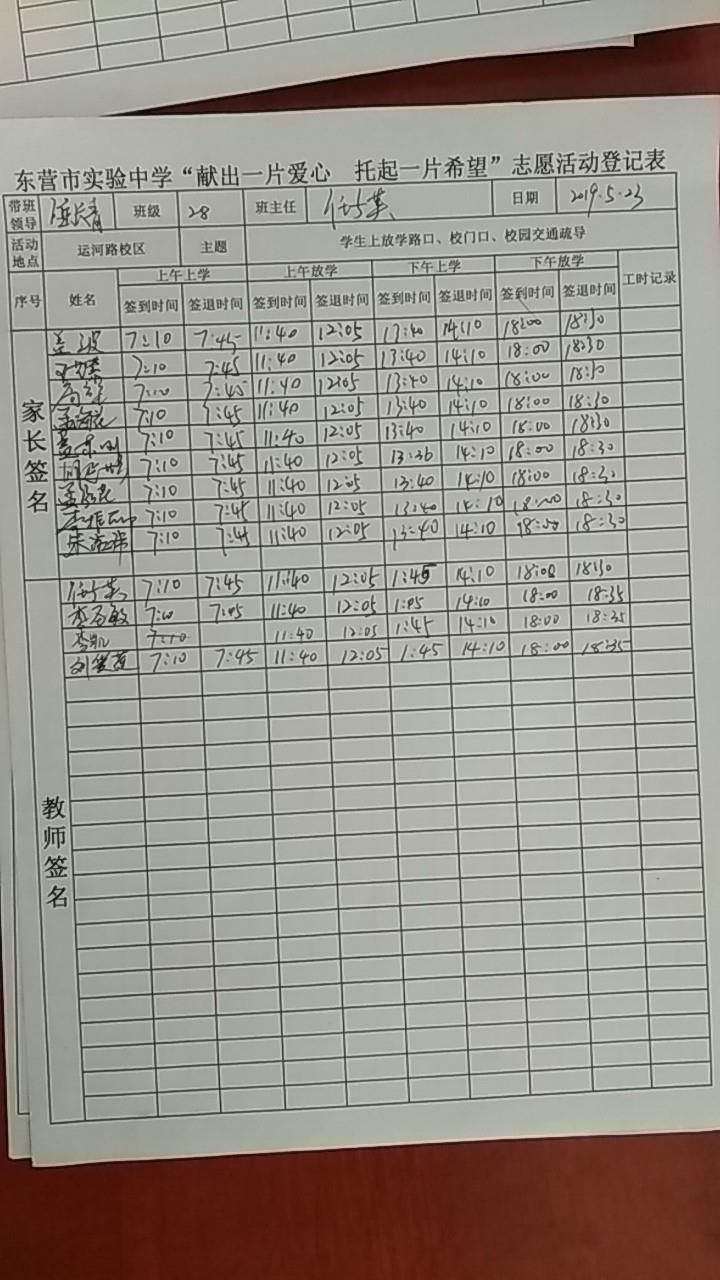 东营市实验中学“献出一片爱心 托起一片希望”志愿活动登记表
带班领导 班级 28 班主任 日期 2019.5.23
活动地点 运河路校区 主题 学生上放学路口、校门口、校园交通疏导
序号 姓名 上午上学 上午放学 下午上学 下午放学 工时记录
签到时间 签退时间 签到时间 签退时间 签到时间 签退时间 签到时间 签退时间
家长签名
7:10 7:45 11:40 12:05 13:40 14:10 18:00 18:30
7:10 7:45 11:40 12:05 13:40 14:10 18:00 18:30
7:10 7:45 11:40 12:05 13:40 14:10 18:00 18:30
7:10 7:45 11:40 12:05 13:40 14:10 18:00 18:30
7:10 7:45 11:40 12:05 13:40 14:10 18:00 18:30
7:10 7:45 11:40 12:05 14:10 18:00 18:30
7:10 7:45 11:40 12:05 13:40 14:10 18:00 18:30
7:10 7:45 11:40 12:05 13:40 14:10 18:00 18:30
7:10 7:45 11:40 12:05 13:40 14:10 18:00 18:30
教师签名
7:10 7:45 11:40 12:05 1:45 14:10 18:00 18:30
11:40 12:05 14:10 18:00 18:35
李凯 7:10 11:40 12:05 1:45 14:10 18:00 18:35
7:10 7:45 11:40 12:05 1:45 14:10 18:00 18:35